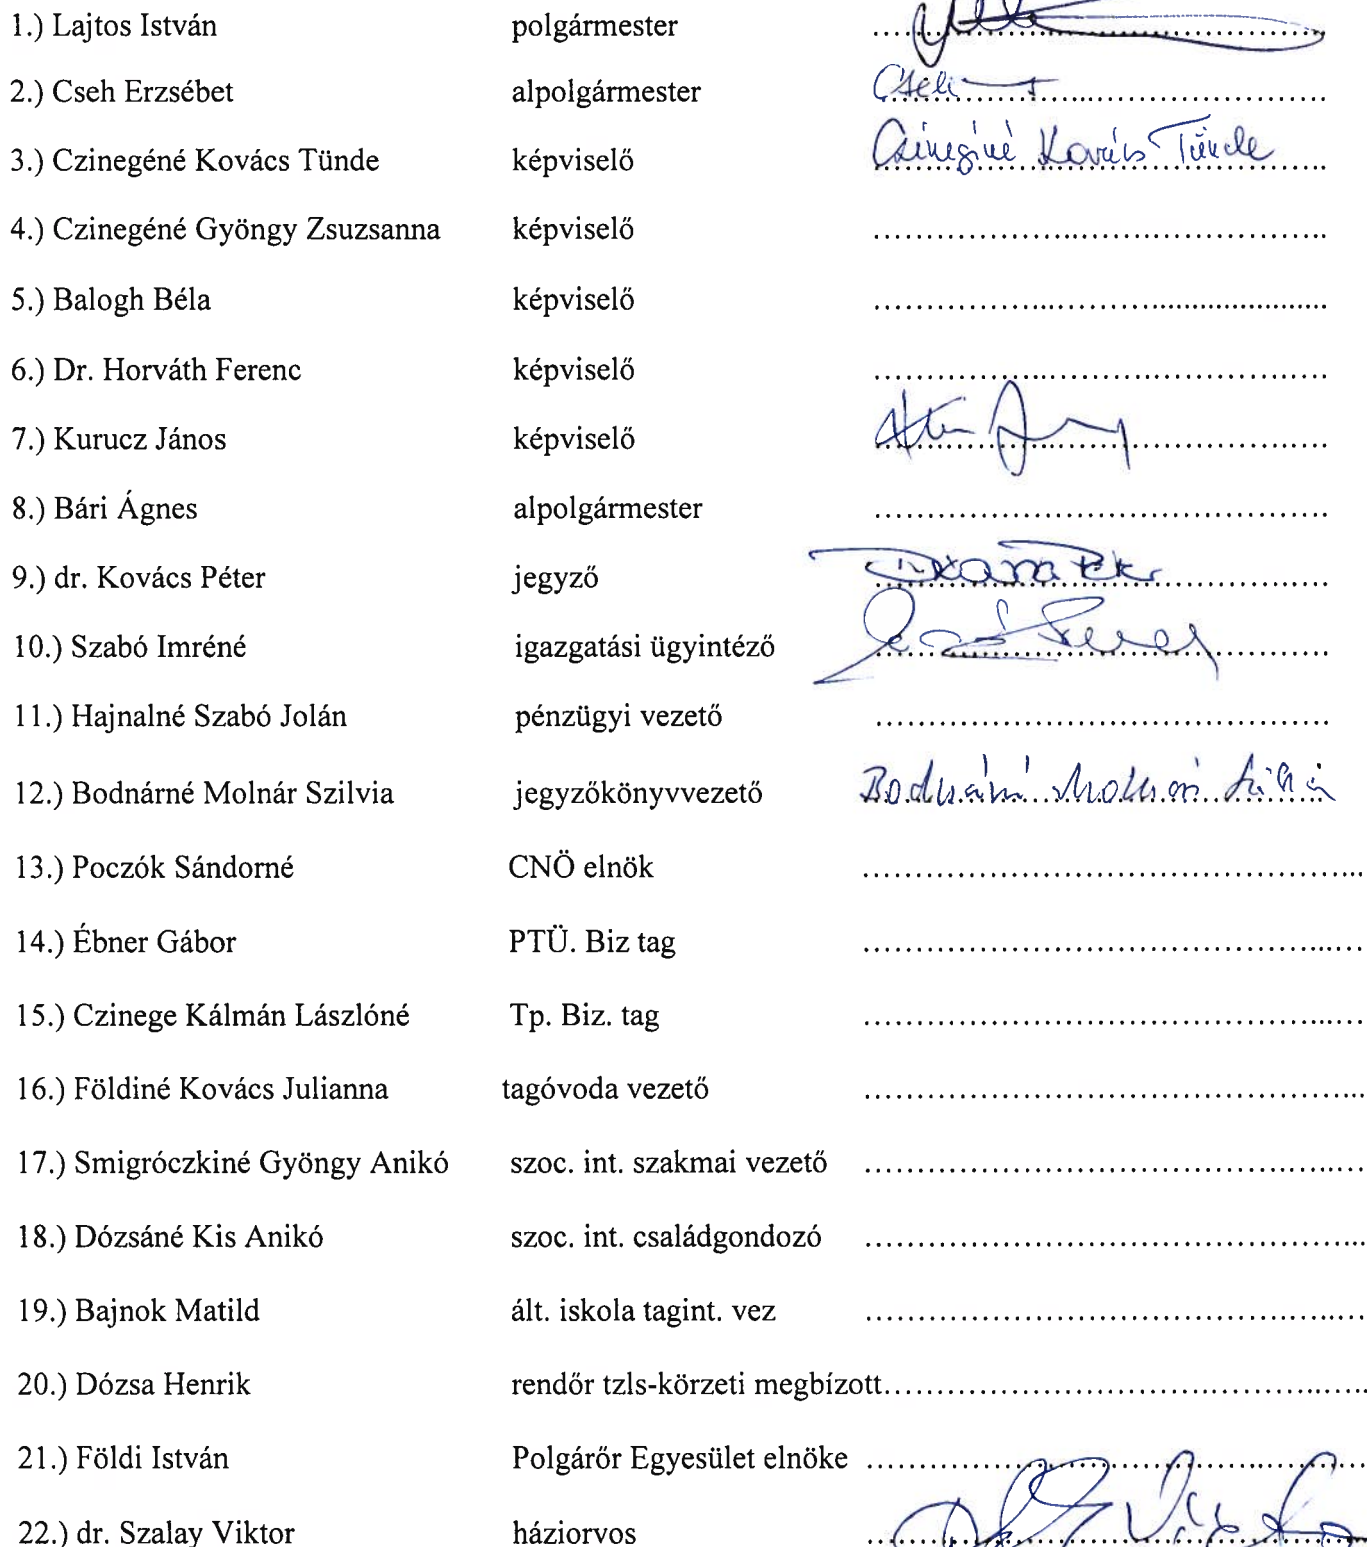 1.) Lajtos István polgármester
2.) Cseh Erzsébet alpolgármester Cseh
3.) Czinegéné Kovács Tünde képviselő Czinegéné Kovács Tünde
4.) Czinegéné Gyöngy Zsuzsanna képviselő
5.) Balogh Béla képviselő
6.) Dr. Horváth Ferenc képviselő
7.) Kurucz János képviselő
8.) Bári Ágnes alpolgármester
9.) dr. Kovács Péter jegyző
10.) Szabó Imréné igazgatási ügyintéző
11.) Hajnalné Szabó Jolán pénzügyi vezető
12.) Bodnárné Molnár Szilvia jegyzőkönyvvezető Bodnárné Molnár Szilvia
13.) Poczók Sándorné CNÖ elnök
14.) Ébner Gábor PTÜ. Biz tag
15.) Czinege Kálmán Lászlóné Tp. Biz. tag
16.) Földiné Kovács Julianna tagóvoda vezető
17.) Smigróczkiné Gyöngy Anikó szoc. int. szakmai vezető
18.) Dózsáné Kis Anikó szoc. int. családgondozó
19.) Bajnok Matild ált. iskola tagint. vez
20.) Dózsa Henrik rendőr tzls-körzeti megbízott
21.) Földi István Polgárőr Egyesület elnöke
22.) dr. Szalay Viktor háziorvos